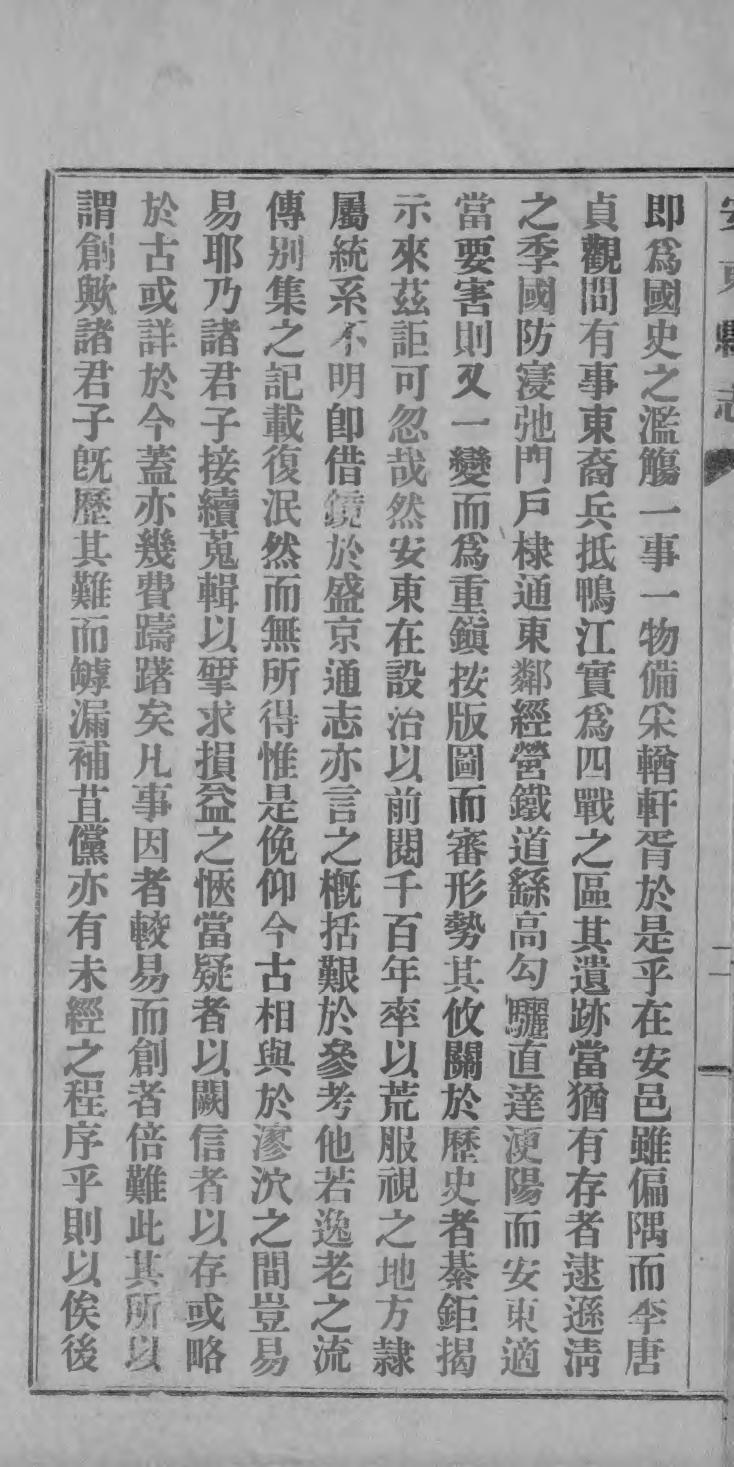 安東縣志
二
即爲國史之濫觴一事一物備采輶軒胥於是乎在安邑雖偏隅而李唐
貞觀間有事東裔兵抵鴨江實爲四戰之區其遺跡當猶有存者逮遜淸
之季國防寖弛門戶棣通東鄰經營鐵道繇高勾驪直達浭陽而安東適
當要害則又一變而爲重鎭按版圖而審形勢其攸關於歷史者綦鉅揭
示來茲詎可忽哉然安東在設治以前閱千百年率以荒服視之地方隷
屬統系不明卽借鏡於盛京通志亦言之槪括艱於參考他若逸老之流
傳別集之記載復泯然而無所得惟是俛仰今古相與於漻泬之間豈易
易耶乃諸君子接續蒐輯以揅求損益之愜當疑者以闕信者以存或略
於古或詳於今蓋亦幾費躊躇矣凡事因者較易而創者倍難此其所以
謂創歟諸君子旣歷其難而罅漏補苴儻亦有未經之程序乎則以俟後